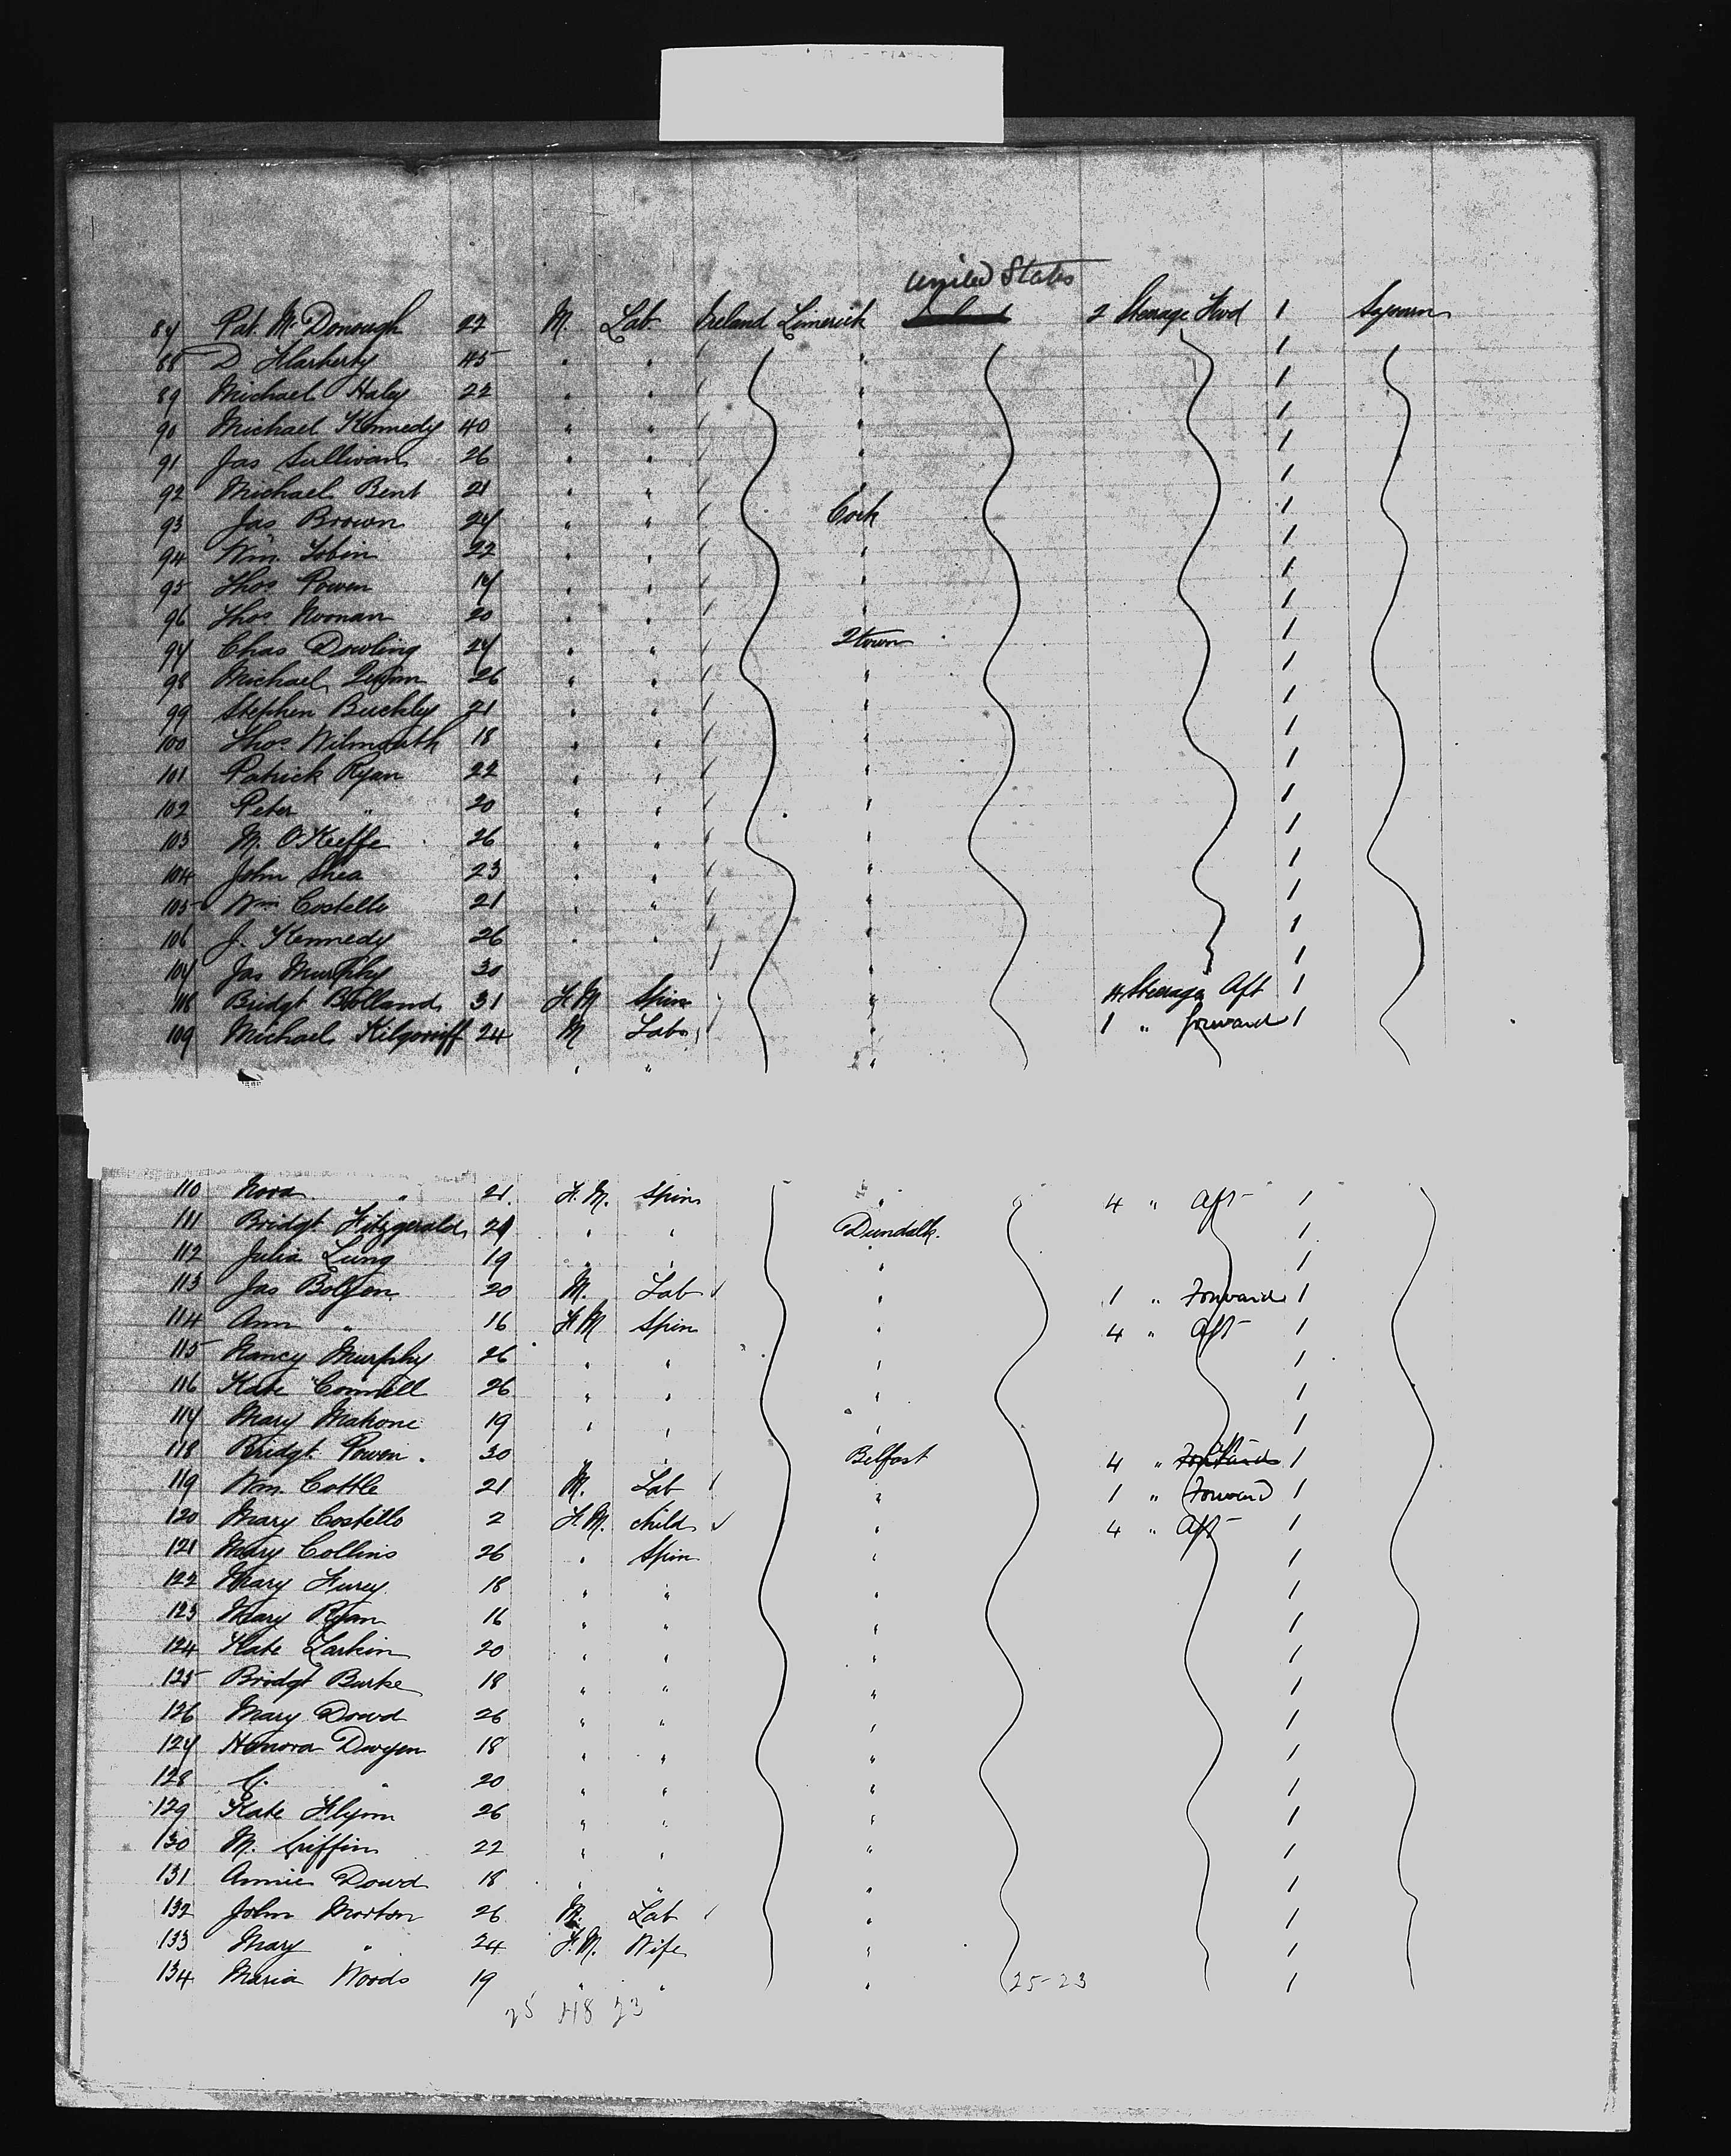 United States
87 Pat. McDonough 22 M. Lab Ireland Limerick 2 Steerage Fwd 1 Sojourn
88 D Flarherty 45 " " "
89 Michael Haley 22 " " "
90 Michael Kennedy 40 " " "
91 Jas Sullivan 26 " " "
92 Michael Bent 21 " " "
93 Jas Brown 24 " " Cork
94 Wm. Tobin 22 " " "
95 Thos Power 17 " " "
96 Thos Noonan 20 " " "
97 Chas Dowling 24 " " Qtown
98 Michael 26 " " "
99 Stephen Buckley 21 " " "
100 Thos Wilmouth 18 " " "
101 Patrick Ryan 22 " " "
102 Peter " 20 " " "
103 M. O'Keeffe 26 " " "
104 John Shea 23 " " "
105 Wm Costello 21 " " "
106 J. Kennedy 26 " " "
107 Jas Murphy 30 "
108 Bridgt Bolland 31 F.M Spin " 4 Steerage Aft 1
109 Michael Kilgorriff 24 M Labr " 1 " forward 1
" " "
110 Nora " 21 F.M. Spin " 4 " Aft 1
111 Bridgt Fitzgerald 21 " " Dundalk. 1
112 Julia Lung 19 " " " 1
113 Jas Bolgen 20 M. Lab " 1 " Forward 1
114 Ann " 16 F.M Spin " 4 " Aft 1
115 Nancy Murphy 26 " " " 1
116 Kate Connell 26 " " " 1
117 Mary Mahone 19 " " " 1
118 Bridgt. Power 30 " " Belfast 4 " Aft 1
119 Wm. Cottle 21 M. Lab " 1 " Forward 1
120 Mary Costello 2 F.M. child " 4 " Aft 1
121 Mary Collins 26 " Spin " 1
122 Mary Furey 18 " " " 1
123 Mary Ryan 16 " " " 1
124 Kate Larkin 20 " " " 1
125 Bridgt Burke 18 " " " 1
126 Mary Dowd 26 " " " 1
127 Honora Dwyer 18 " " " 1
128 " 20 " " " 1
129 Kate Flynn 26 " " " 1
130 M. Griffin 22 " " " 1
131 Annie Dowd 18 " " " 1
132 John Morton 26 M. Lab " 1
133 Mary " 24 F.M. Wife " 1
134 Maria Woods 19 " " " 25-23 1
25 48 23